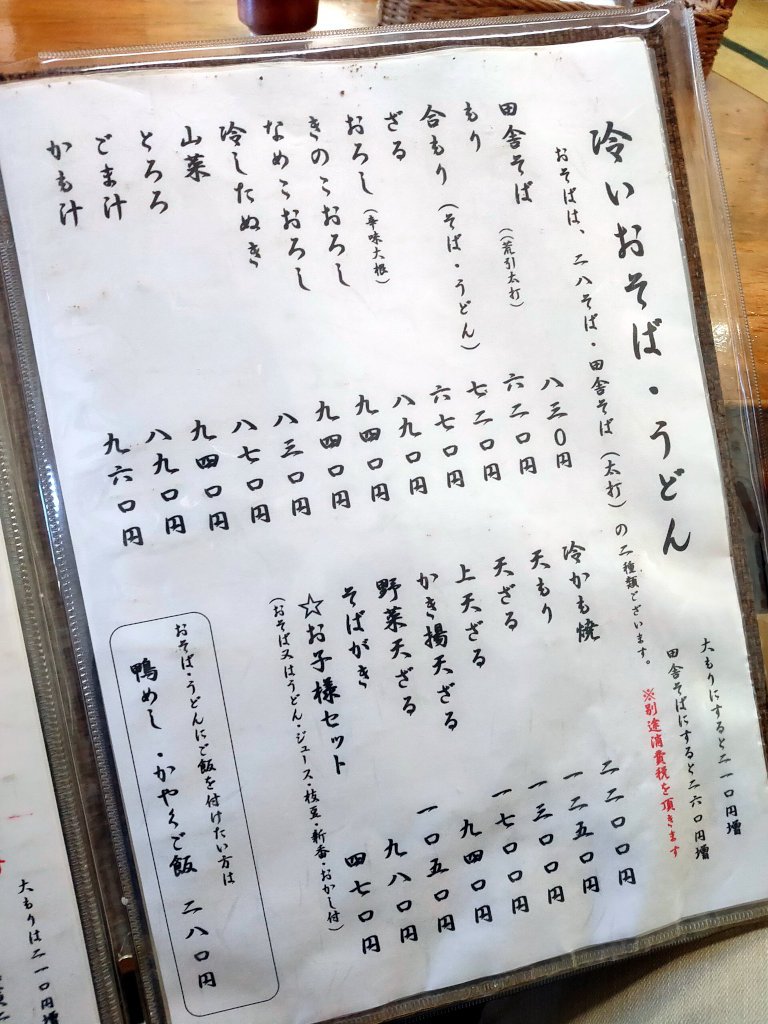 冷いおそば・うどん
おそばは、二八そば・田舎そば(太打)の二種類ございます。
※別途消費税を頂きます
大もりにすると二一〇円増
田舎そばにすると二六〇円増
田舎そば((荒引太打) 八三〇円
もり 六二〇円
合もり(そば・うどん) 七二〇円
ざる 六七〇円
おろし(辛味大根) 八九〇円
きのこおろし 九四〇円
なめこおろし 九四〇円
冷したぬき 八三〇円
山菜 八七〇円
とろろ 九四〇円
ごま汁 八九〇円
かも汁 九六〇円
冷かも焼 二二〇〇円
天もり 一二五〇円
天ざる 一三〇〇円
上天ざる 一七〇〇円
かき揚天ざる 九四〇円
野菜天ざる 一〇五〇円
そばがき 九八〇円
☆お子様セット 四七〇円
(おそば又はうどん・ジュース・枝豆・新香・おかし付)
おそば・うどんにご飯を付けたい方は
鴨めし・かやくご飯 二八〇円
大もりは二一〇円増